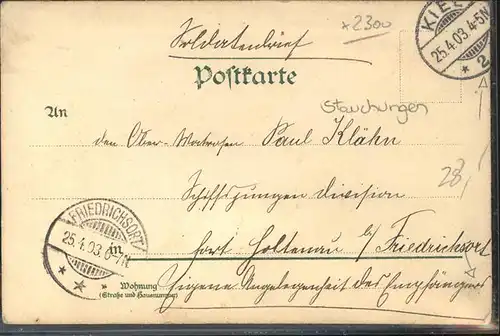 Soldatenbrief
x2300
KIEL
25.4.03.4-5N
* 2
Postkarte
Stauchungen
An
den Ober-Matrosen Paul Klähn
28,
Schiffsjungen Division
FRIEDRICHSORT
25.4.03.6-7N
* * *
in
Fort Holtenau b/ Friedrichsort
Wohnung
(Straße und Hausnummer)
Eigene Angelegenheit des Empfängers